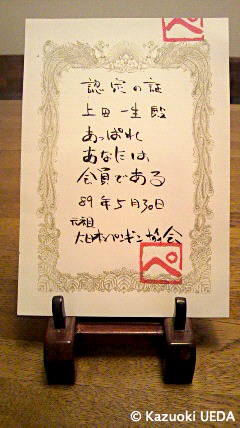 認定の証
上田一生殿
あっぱれ
あなたは、
会員である
89年5月30日
元祖
大日本ペンギン協会
ペ
© Kazuoki UEDA